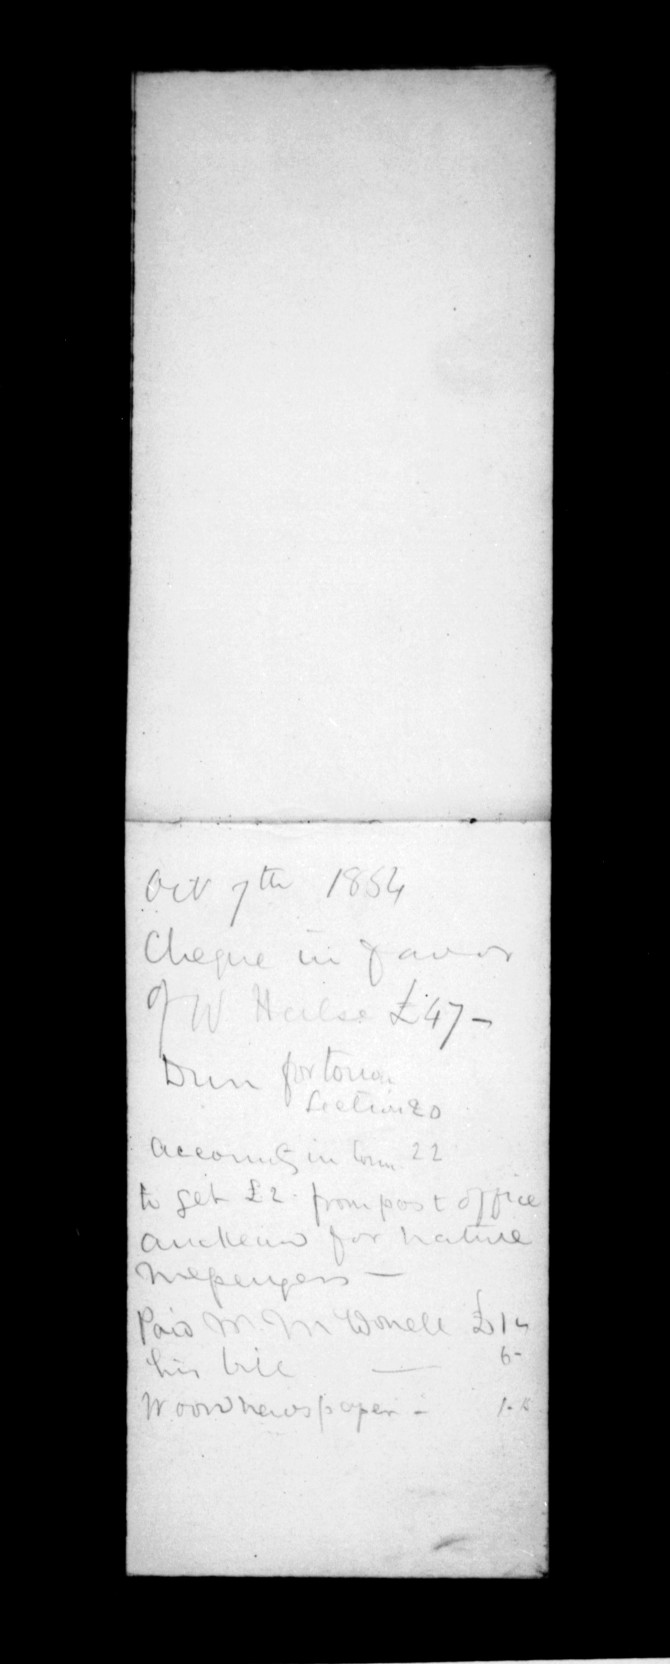 Oct 7th 1854
Cheque in favor
of W Hulse £47-
Dun for town
Section 20
accounts in 22
to get £2 from post office
auckland for native
messengers —
Paid Mr McDonell £1
his bill — 6-
Wood newspaper -